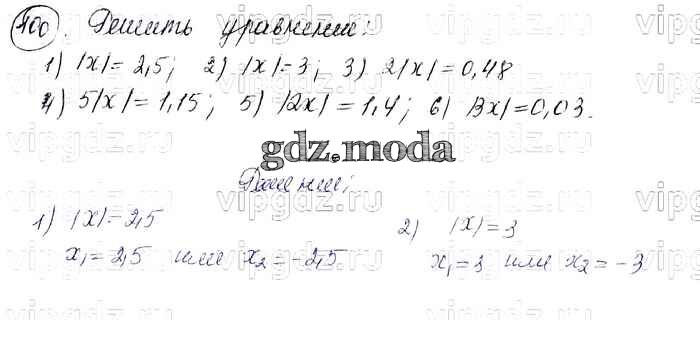 400. Решить уравнение:
1) |x| = 2,5; 2) |x| = 3; 3) 2|x| = 0,48
4) 5|x| = 1,15; 5) |2x| = 1,4; 6) |3x| = 0,03.
gdz.moda
Решение:
1) |x| = 2,5
x₁ = 2,5 или x₂ = -2,5
2) |x| = 3
x₁ = 3 или x₂ = -3
vipgdz.ru